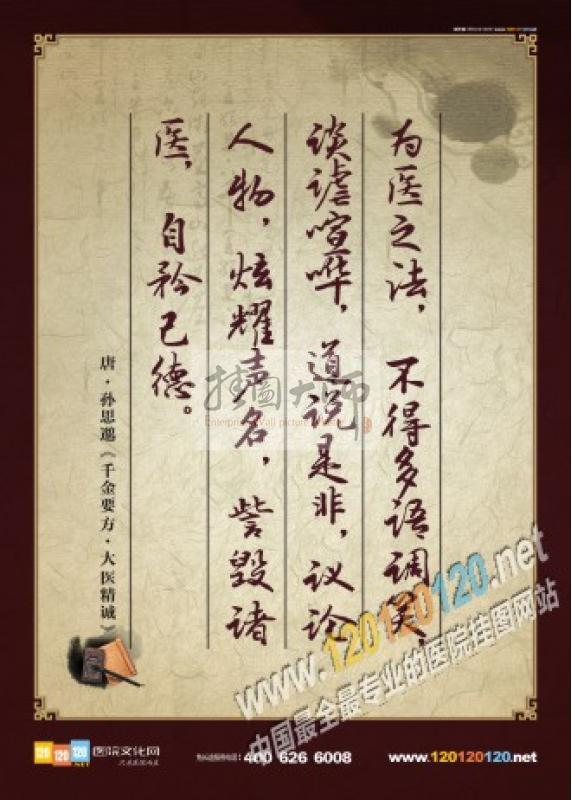 为医之法，不得多语调笑，
谈谑喧哗，道说是非，议论
人物，炫耀声名，訾毁诸
医，自矜己德。
唐·孙思邈《千金要方·大医精诚》
挂图大师
www.120120120.net
中国最全最专业的医院挂图网站
120 120 120 .NET 医院文化网
400 626 6008
www.120120120.net